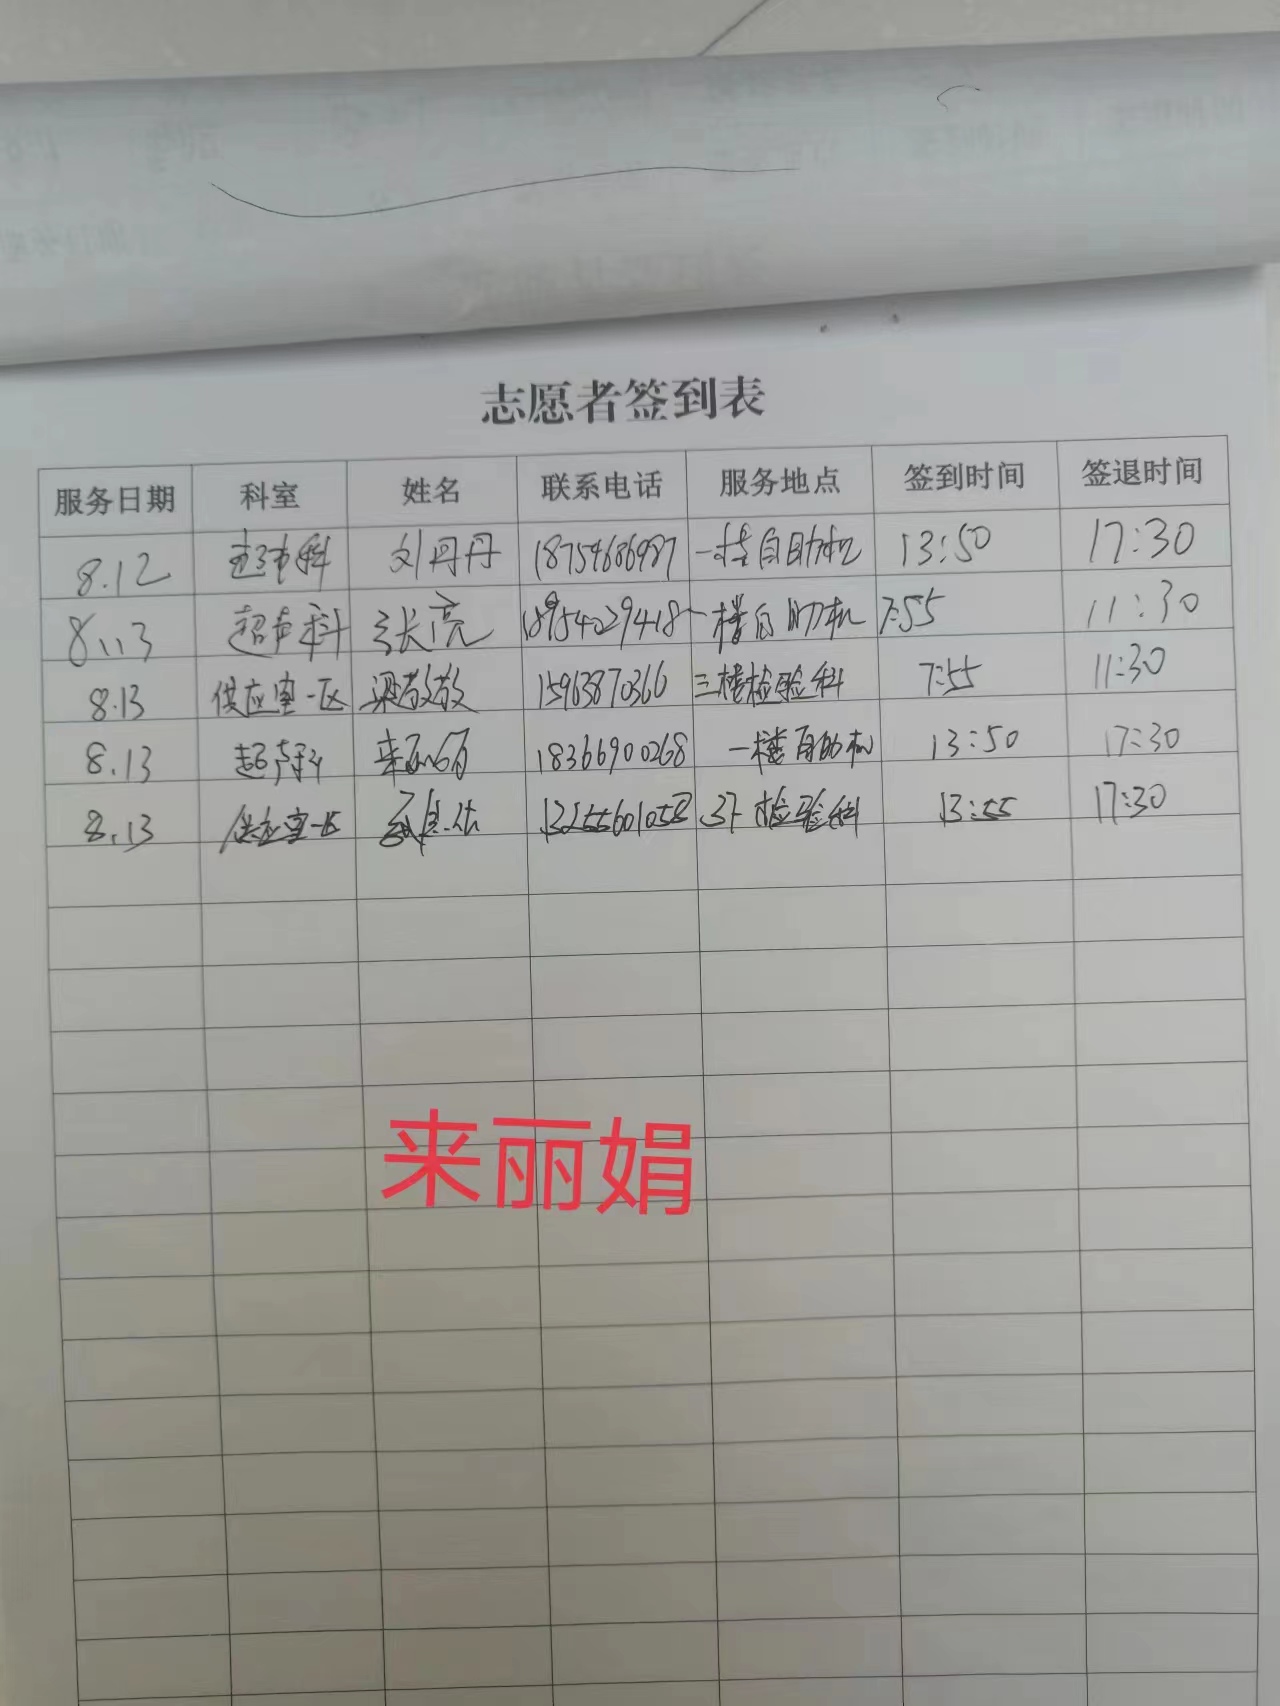 志愿者签到表
服务日期 科室 姓名 联系电话 服务地点 签到时间 签退时间
8.12 超声科 刘丹丹 18754686987 一楼自助机 13:50 17:30
8.13 超声科 张亮 18954029418 一楼自助机 7:55 11:30
8.13 供应室一区 梁敬敬 15963870366 三楼检验科 7:55 11:30
8.13 超声科 来丽娟 18366900268 一楼自助机 13:50 17:30
8.13 供应室一区 13255601058 3F检验科 13:55 17:30
来丽娟